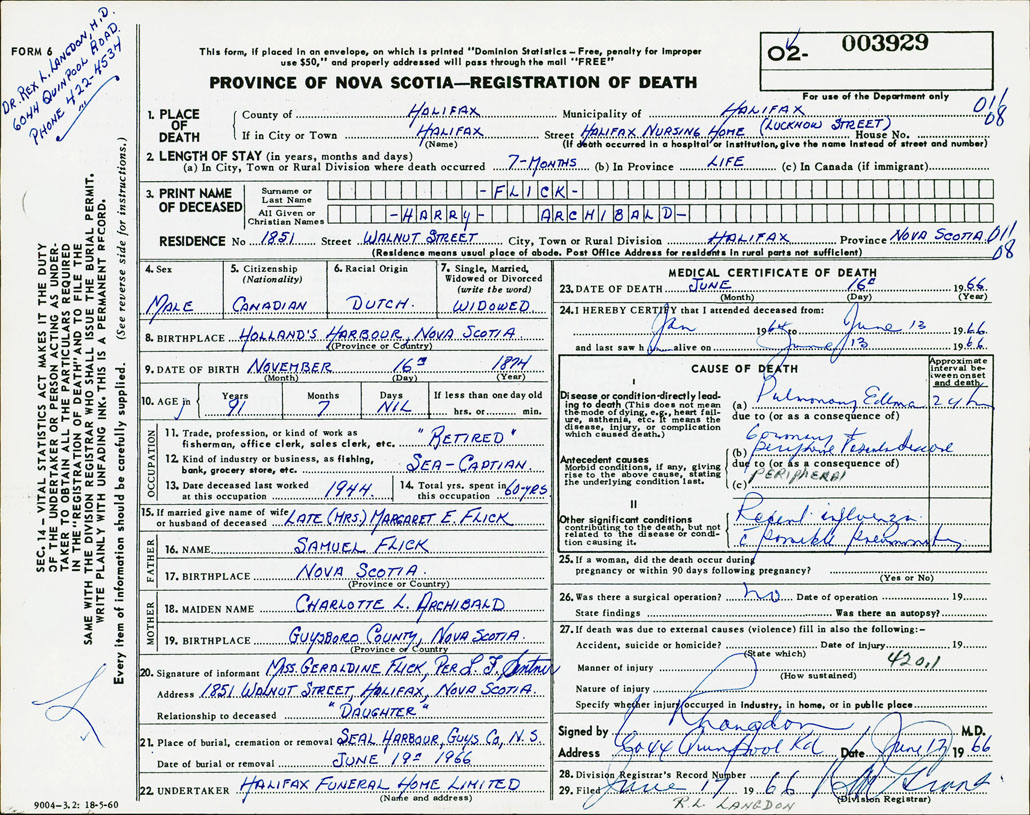 DR. REX L. LANGDON, M.D.
6044 QUINPOOL ROAD
PHONE 422-4534
FORM 6
This form, if placed in an envelope, on which is printed "Dominion Statistics – Free, penalty for improper
use $50," and properly addressed will pass through the mail "FREE"
PROVINCE OF NOVA SCOTIA—REGISTRATION OF DEATH
02- 003929
For use of the Department only
011
08
SEC. 14 – VITAL STATISTICS ACT MAKES IT THE DUTY
OF THE UNDERTAKER OR PERSON ACTING AS UNDER-
TAKER TO OBTAIN ALL THE PARTICULARS REQUIRED
IN THE "REGISTRATION OF DEATH" AND TO FILE THE
SAME WITH THE DIVISION REGISTRAR WHO SHALL ISSUE THE BURIAL PERMIT.
WRITE PLAINLY WITH UNFADING INK. THIS IS A PERMANENT RECORD.
Every item of information should be carefully supplied. (See reverse side for instructions.)
1. PLACE OF DEATH
County of HALIFAX Municipality of HALIFAX
If in City or Town HALIFAX Street HALIFAX NURSING HOME (LUCKNOW STREET) House No.
(Name) (If death occurred in a hospital or institution, give the name instead of street and number)
2. LENGTH OF STAY (in years, months and days)
(a) In City, Town or Rural Division where death occurred 7-MONTHS (b) In Province LIFE (c) In Canada (if immigrant)
3. PRINT NAME OF DECEASED
Surname or Last Name -FLICK-
All Given or Christian Names -HARRY- ARCHIBALD-
RESIDENCE No 1851 Street WALNUT STREET City, Town or Rural Division HALIFAX Province NOVA SCOTIA 011
08
(Residence means usual place of abode. Post Office Address for residents in rural parts not sufficient)
4. Sex
MALE
5. Citizenship (Nationality)
CANADIAN
6. Racial Origin
DUTCH.
7. Single, Married, Widowed or Divorced (write the word)
WIDOWED
8. BIRTHPLACE HOLLAND'S HARBOUR, NOVA SCOTIA
(Province or Country)
9. DATE OF BIRTH NOVEMBER 16 1874
(Month) (Day) (Year)
10. AGE in Years Months Days If less than one day old
91 7 NIL hrs. or min.
OCCUPATION
11. Trade, profession, or kind of work as
fisherman, office clerk, sales clerk, etc. "RETIRED"
12. Kind of industry or business, as fishing,
bank, grocery store, etc. SEA-CAPTIAN
13. Date deceased last worked
at this occupation 1944.
14. Total yrs. spent in
this occupation 60-YRS.
15. If married give name of wife
or husband of deceased LATE (MRS.) MARGARET E. FLICK
FATHER
16. NAME SAMUEL FLICK
17. BIRTHPLACE NOVA SCOTIA.
(Province or Country)
MOTHER
18. MAIDEN NAME CHARLOTTE L. ARCHIBALD
19. BIRTHPLACE GUYSBORO COUNTY, NOVA SCOTIA.
(Province or Country
20. Signature of informant MISS. GERALDINE FLICK, PER L. F.
Address 1851 WALNUT STREET, HALIFAX, NOVA SCOTIA.
Relationship to deceased "DAUGHTER"
21. Place of burial, cremation or removal SEAL HARBOUR, GUYS CO, N.S.
Date of burial or removal JUNE 19 1966
22. UNDERTAKER HALIFAX FUNERAL HOME LIMITED
(Name and address)
9004–3.2: 18-5-60
MEDICAL CERTIFICATE OF DEATH
23. DATE OF DEATH JUNE 16 1966
(Month) (Day) (Year)
24. I HEREBY CERTIFY that I attended deceased from:
Jan 1964 to June 13 1966
and last saw h alive on June 13 1966
CAUSE OF DEATH
Approximate interval between onset and death
I
Disease or condition directly lead-
ing to death (This does not mean
the mode of dying, e.g., heart fail-
ure, asthenia, etc. It means the
disease, injury, or complication
which caused death.)
(a) Pulmonary Edema 24 hr
due to (or as a consequence of)
Coronary +
(b) peripheral vascular disease
due to (or as a consequence of)
PERIPHERAL
(c)
Antecedent causes
Morbid conditions, if any, giving
rise to the above cause, stating
the underlying condition last.
II
Other significant conditions
contributing to the death, but not
related to the disease or condi-
tion causing it.
Recent influenza
c possible pneumonitis
25. If a woman, did the death occur during
pregnancy or within 90 days following pregnancy?
(Yes or No)
26. Was there a surgical operation? no Date of operation 19
State findings Was there an autopsy?
27. If death was due to external causes (violence) fill in also the following:–
Accident, suicide or homicide? Date of injury 19
(State which) 420.1
Manner of injury
(How sustained)
Nature of injury
Specify whether injury occurred in industry, in home, or in public place
Signed by R Langdon M.D.
Address 6044 Quinpool Rd Date June 17 1966
28. Division Registrar's Record Number
29. Filed June 17 1966
(Division Registrar)
R.L. LANGDON